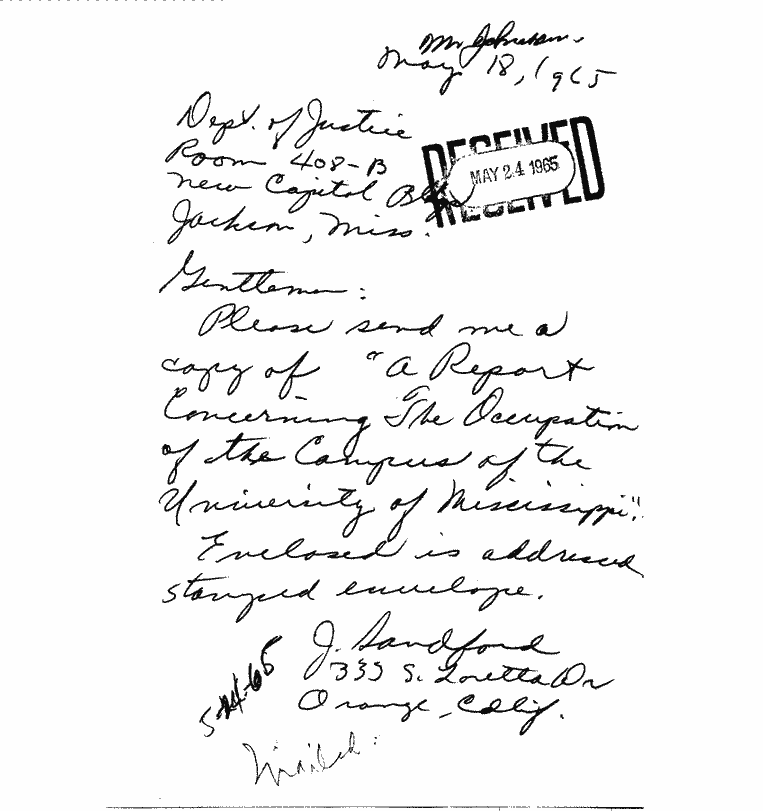 Mr Johnson.
May 18, 1965
Dept. of Justice
Room 408-B
New Capitol Bldg
Jackson, Miss.
RECEIVED
MAY 24 1965
RECEIVED
Gentlemen:
Please send me a
copy of "A Report
Concerning The Occupation
of the Campus of the
University of Mississippi".
Enclosed is addressed
stamped envelope.
J. Sandford
333 S. Loretta Dr
Orange, Calif.
5-24-65
Mailed: